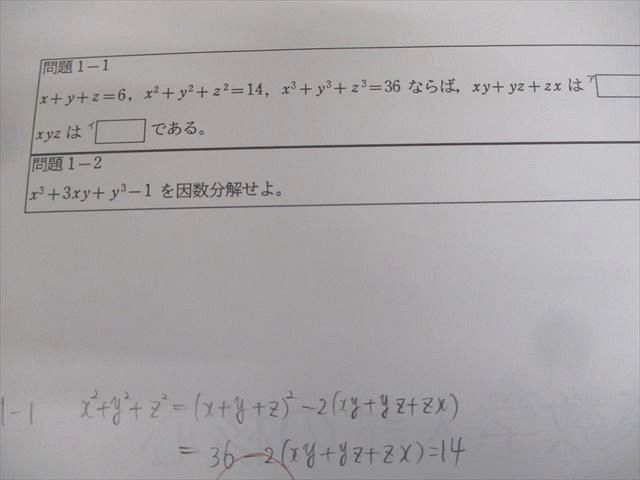 問題1-1
x+y+z=6, x²+y²+z²=14, x³+y³+z³=36 ならば, xy+yz+zx は ア
xyz は イ である。
問題1-2
x³+3xy+y³-1 を因数分解せよ。
1-1 x²+y²+z²=(x+y+z)²-2(xy+yz+zx)
=36-2(xy+yz+zx)=14